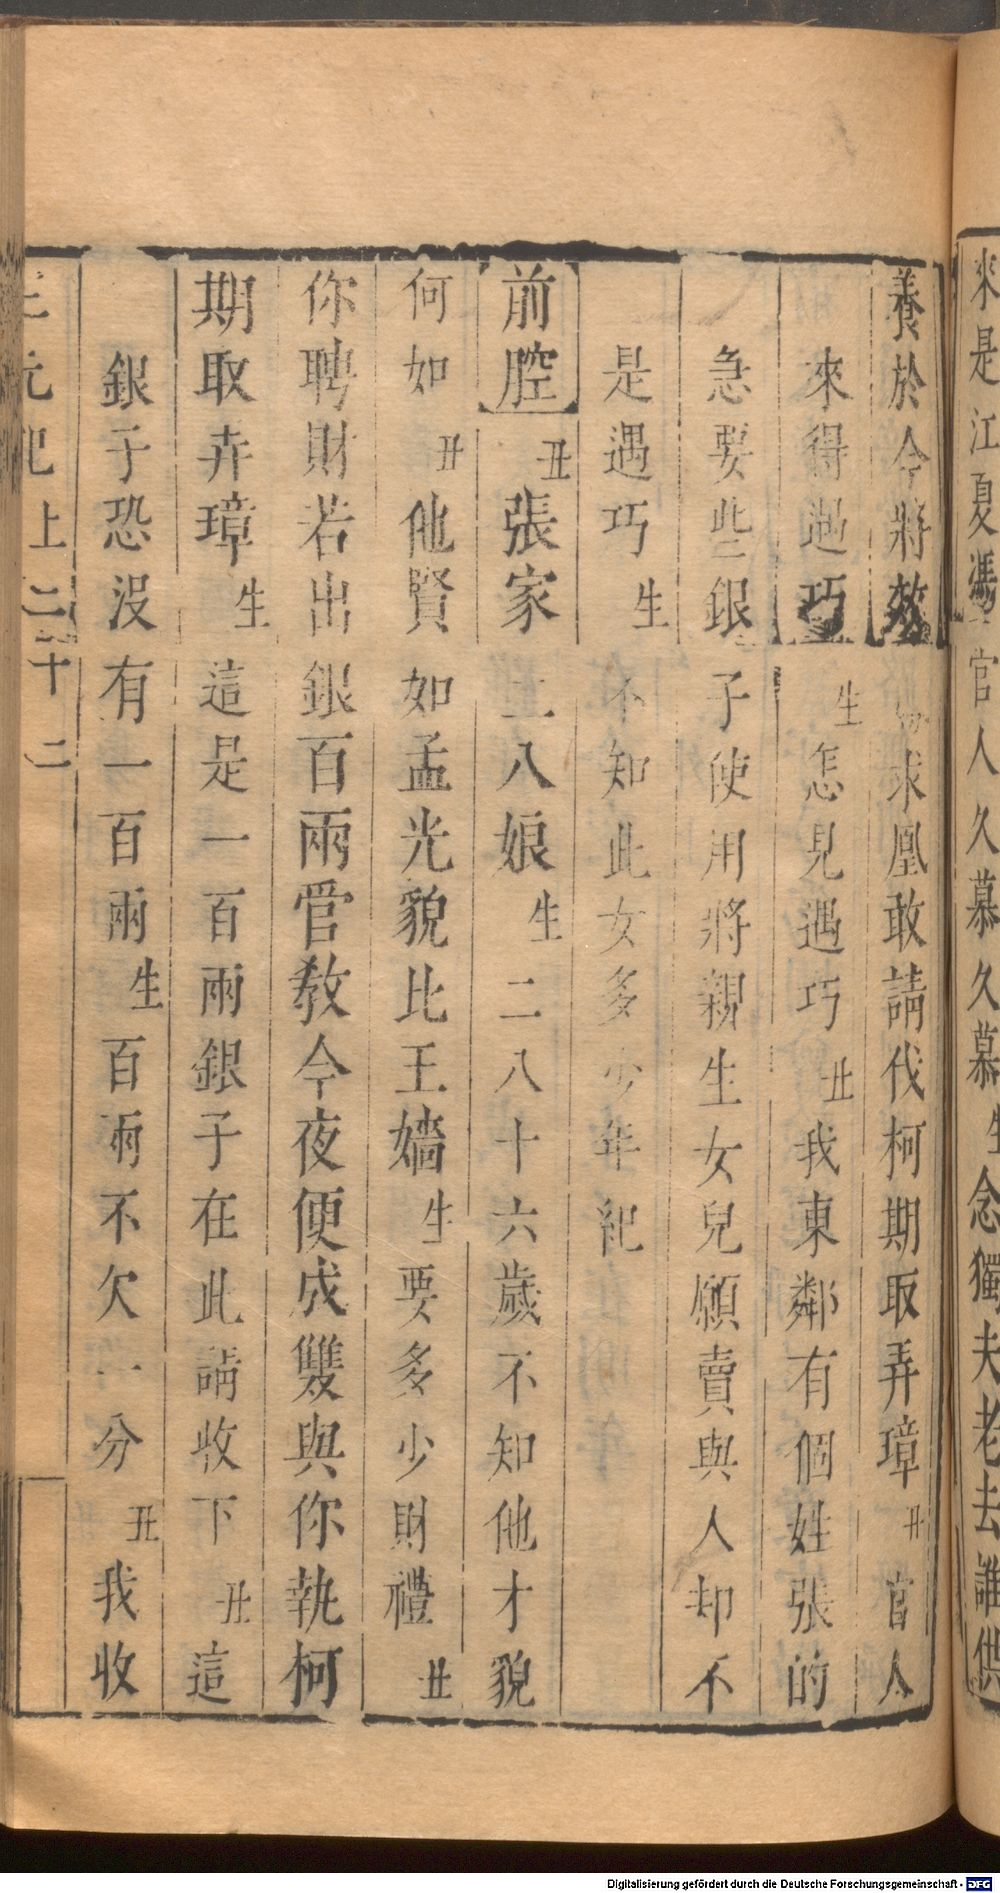 來是江夏馮官人久慕久慕生念獨夫老去誰供
養於今將效 求凰敢請伐柯期取弄璋丑官人
來得遇巧生怎見遇巧丑我東鄰有個姓張的
急要些銀子使用將親生女兒願賣與人却不
是遇巧生不知此女多少年紀
前腔丑張家二八娘生二八十六歲不知他才貌
何如丑他賢如孟光貌比王嬙生要多少財禮丑
你聘財若出銀百兩管教今夜便成雙與你執柯
期取弄璋生這是一百兩銀子在此請收下丑這
銀子恐沒有一百兩生百兩不欠一分丑我收
三元記上 二十二
Digitalisierung gefördert durch die Deutsche Forschungsgemeinschaft - DFG